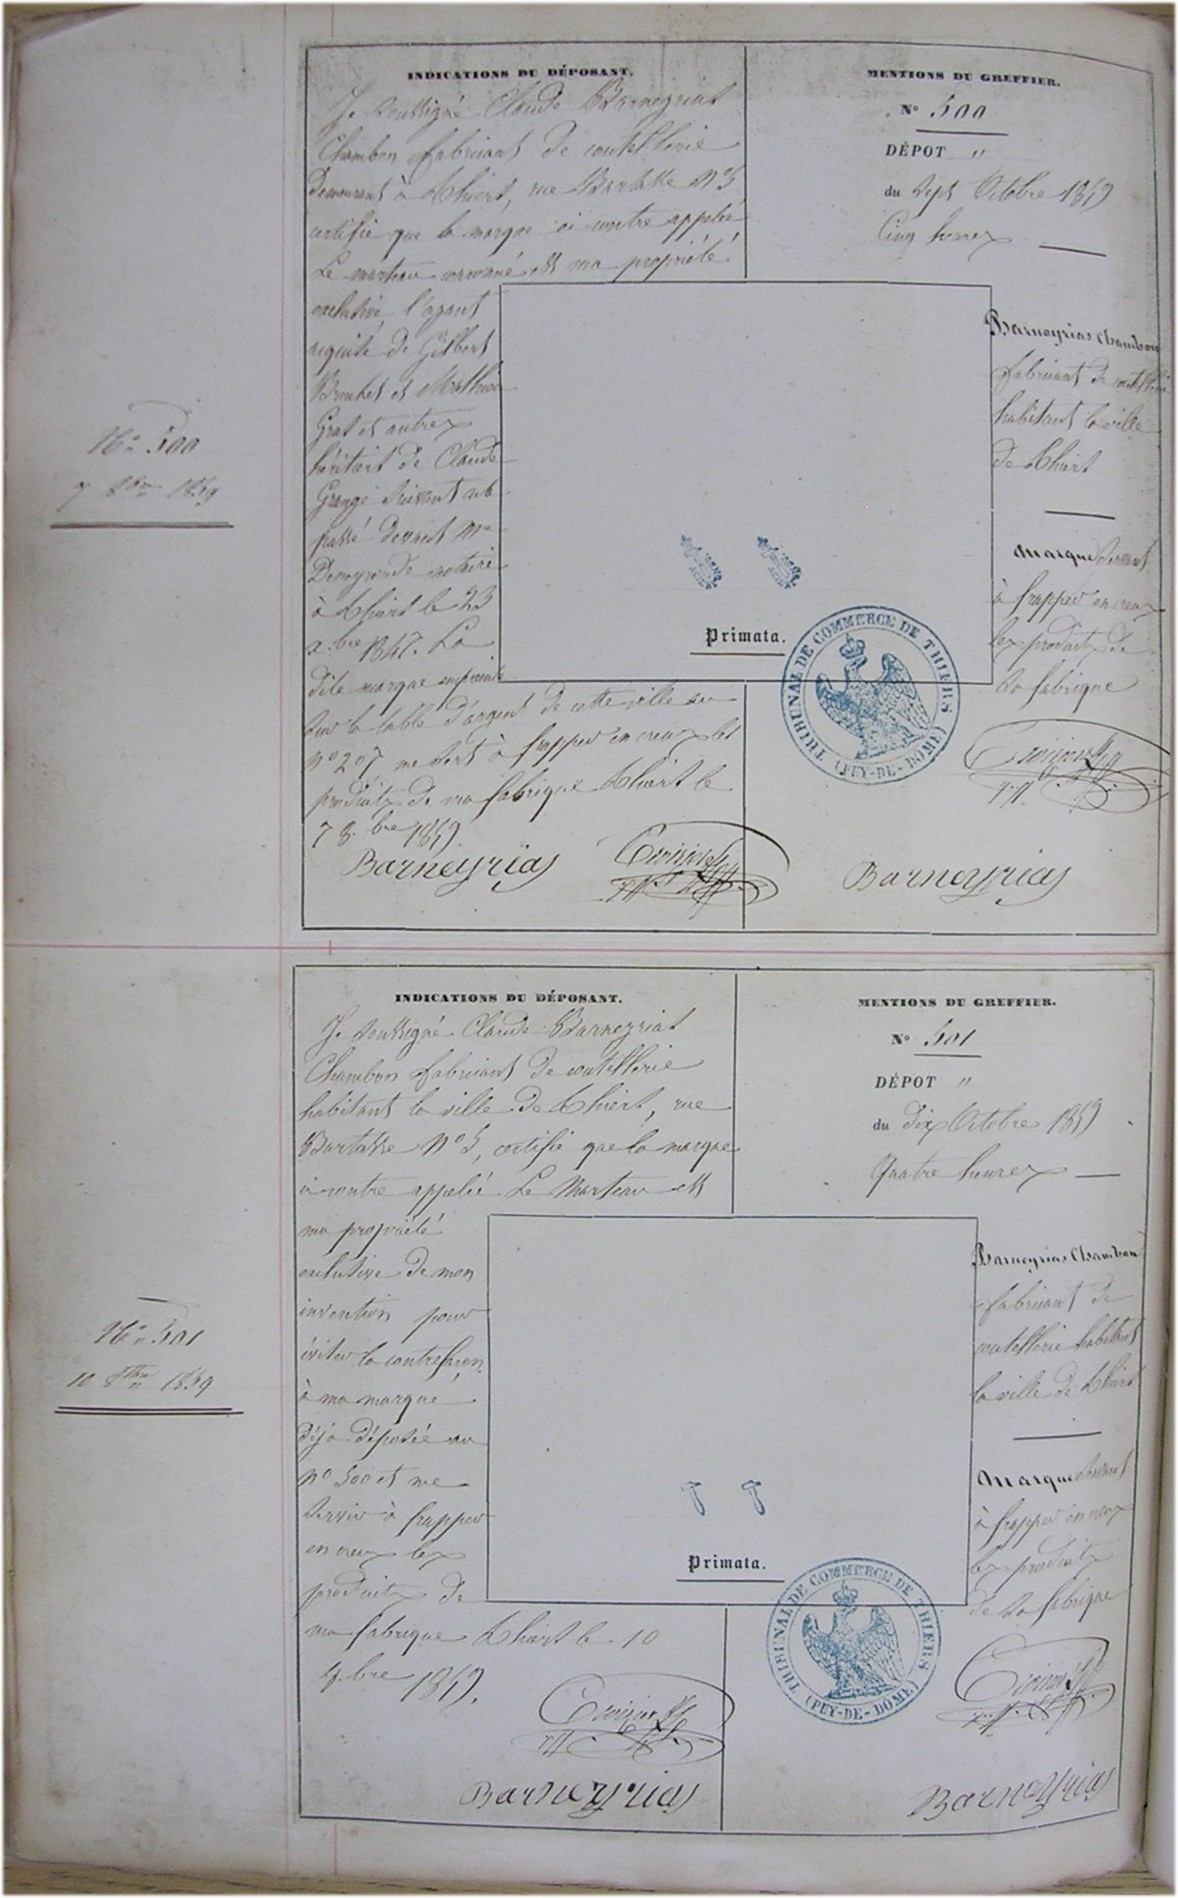 INDICATIONS DU DÉPOSANT.
Je soussigné Claude Barneyrias
Chambon fabricant de coutellerie
demeurant à Thiers, rue Bartasse Nº 5
certifie que la marque ci contre appelée
Le marteau couronné est ma propriété
exclusive, l'ayant
acquise de Gilbert
et Mathieu
Grat et autres
héritiers de Claude
Grange suivant
passé devant Me
notaire
à Thiers le 23
x.bre 1847. La
dite marque empreinte
sur la table d'argent de cette ville au
nº 207 me sert à frapper en creux les
produits de ma fabrique Thiers le
7 8.bre 1859
Barneyrias
MENTIONS DU GREFFIER.
Nº 500
DÉPOT "
du Sept Octobre 1859
Cinq heures
Barneyrias Chambon
fabricant de coutellerie
habitant la ville
de Thiers
Marque servant
à frapper en creux
les produits de
sa fabrique
Barneyrias
Primata.
TRIBUNAL DE COMMERCE DE THIERS
(PUY-DE-DOME)
Nº 500
7 8bre 1859
INDICATIONS DU DÉPOSANT.
Je soussigné Claude Barneyrias
Chambon fabricant de coutellerie
habitant la ville de Thiers, rue
Bartasse Nº 5, certifie que la marque
ci contre appelée Le Marteau est
ma propriété
exclusive de mon
invention pour
éviter la contrefaçon
à ma marque
déjà déposée au
nº 500 et me
servir à frapper
en creux les
produits de
ma fabrique Thiers le 10
8.bre 1859.
Barneyrias
MENTIONS DU GREFFIER.
Nº 501
DÉPOT "
du dix Octobre 1859
Quatre heures
Barneyrias Chambon
fabricant de
coutellerie habitant
la ville de Thiers
Marque servant
à frapper en creux
les produits
de sa fabrique
Barneyrias
Primata.
TRIBUNAL DE COMMERCE DE THIERS
(PUY-DE-DOME)
Nº 501
10 8bre 1859